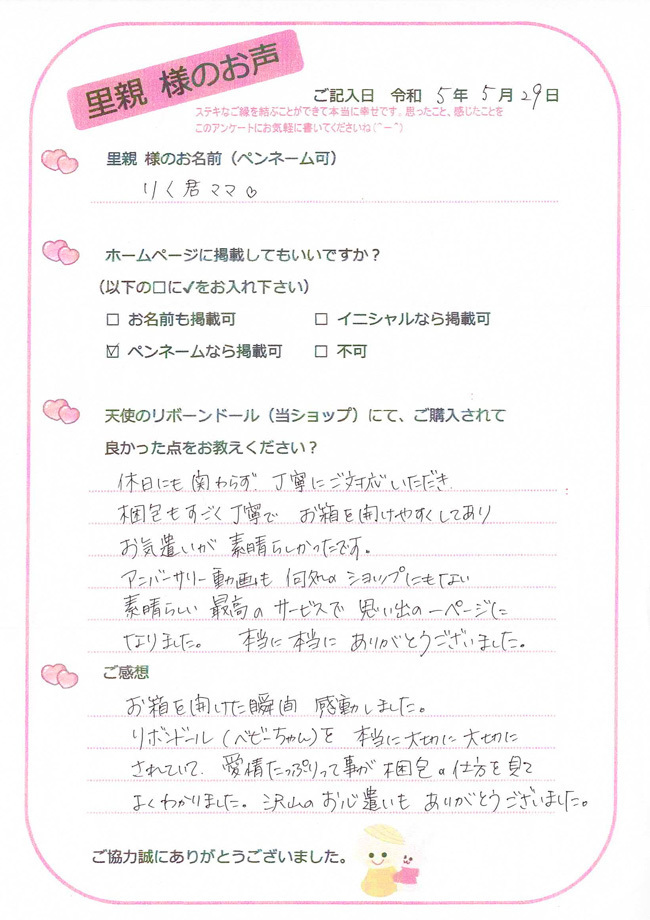 里親 様のお声
ご記入日 令和 5年 5月 29日
ステキなご縁を結ぶことができて本当に幸せです。思ったこと、感じたことを
このアンケートにお気軽に書いてくださいね(⌒ー⌒)
里親 様のお名前（ペンネーム可）
りく君ママ♡
ホームページに掲載してもいいですか？
（以下の□に✓をお入れ下さい）
□ お名前も掲載可 □ イニシャルなら掲載可
☑ ペンネームなら掲載可 □ 不可
天使のリボーンドール（当ショップ）にて、ご購入されて
良かった点をお教えください？
休日にも関わらず、丁寧にご対応いただき、
梱包もすごく丁寧で お箱を開けやすくしてあり
お気遣いが 素晴らしかったです。
アニバーサリー動画も 何処の ショップにもない
素晴らしい 最高の サービスで 思い出の一ページに
なりました。 本当に本当に ありがとうございました。
ご感想
お箱を開けた瞬間 感動しました。
リボンドール（ベビーちゃん）を 本当に大切に大切に
されていて、愛情たっぷりって事が 梱包の仕方を見て
よくわかりました。沢山のお心遣いも ありがとうございました。
ご協力誠にありがとうございました。